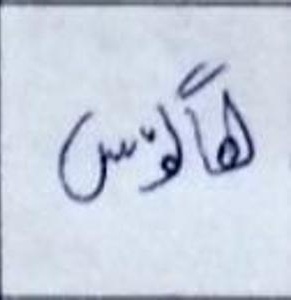 لھاگوس